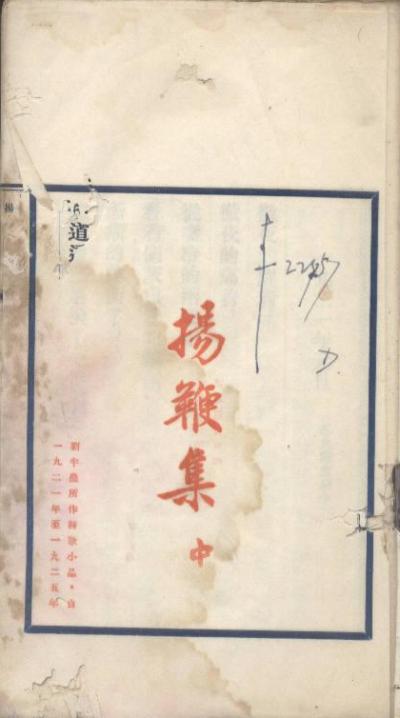 22457
D.
揚鞭集 中
劉半農所作詩歌小品，自
一九二一年至一九二五年
道
揚